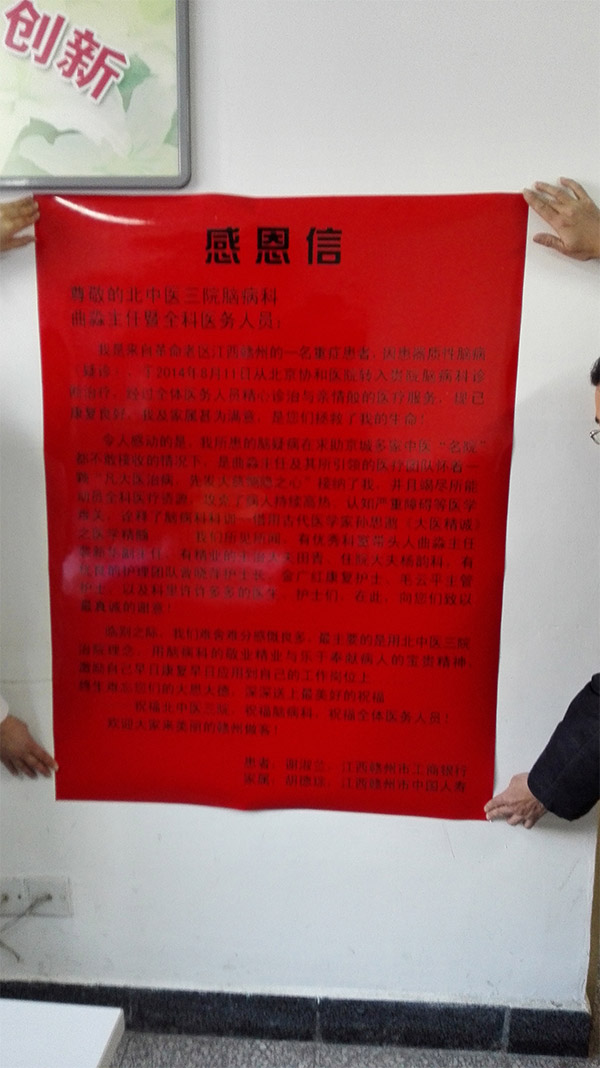 创新
感恩信
尊敬的北中医三院脑病科
曲淼主任暨全科医务人员：
我是来自革命老区江西赣州的一名重症患者，因患
性脑病
（疑诊），于2014年8月11日从北京协和医院转入贵院脑病科诊
断治疗，经过全体医务人员精心诊治与亲情般的医疗服务，现已
康复良好，我及家属甚为满意，是您们拯救了我的生命！
令人感动的是，我所患的脑疑病在求助京城多家中医“名院”
都不敢接收的情况下，是曲淼主任及其所引领的医疗团队怀着一
颗“凡大医治病，先发大慈恻隐之心”接纳了我，并且竭尽所能
动员全科医疗资源，攻克了病人持续高热、认知严重障碍等医学
难关，诠释了脑病科科训—借用古代医学家孙思邈《大医精诚》
之医学精髓
我们所见所闻，有优秀科室带头人曲淼主任
副主任，有精业的主治大夫田青、住院大夫杨韵科，有
优良的护理团队曾晓萍护士长、金广红康复护士、毛云平主管
护士，以及科里许许多多的医生、护士们，在此，向您们致以
最真诚的谢意！
临别之际，我们难舍难分感慨良多，最主要的是用北中医三院
治院理念、用脑病科的敬业精业与乐于奉献病人的宝贵精神，
激励自己早日康复早日应用到自己的工作岗位上
终生难忘您们的大恩大德，深深送上最美好的祝福
祝福北中医三院，祝福脑病科，祝福全体医务人员！
欢迎大家来美丽的赣州做客！
患者：谢淑兰，江西赣州市工商银行
家属：胡德琼，江西赣州市中国人寿